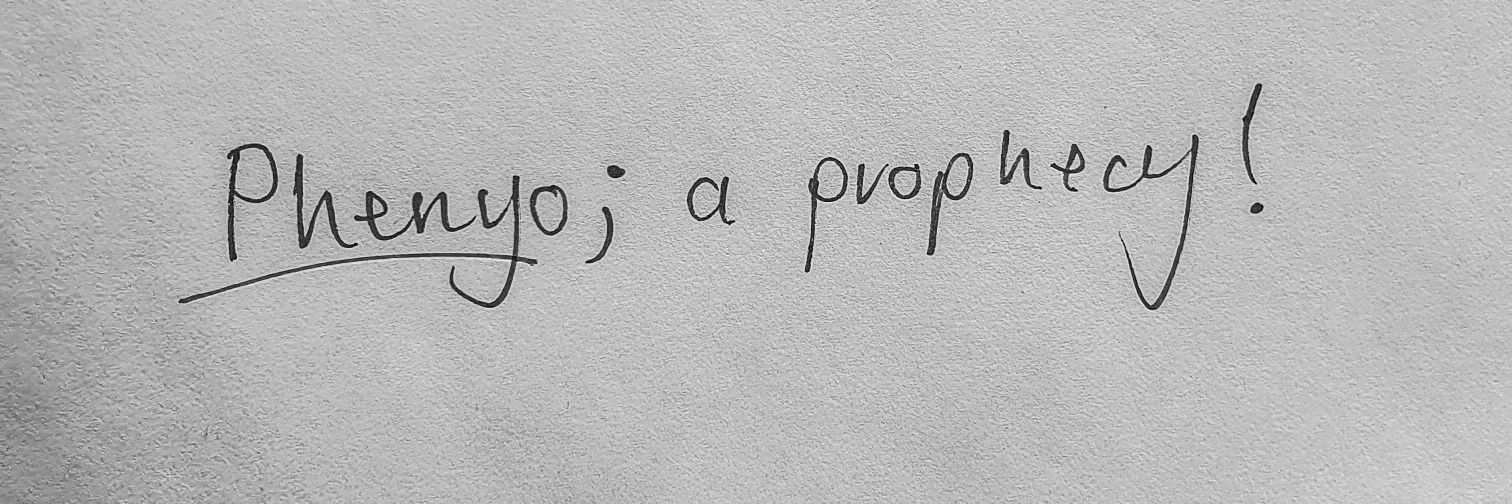 Phenyo; a prophecy!